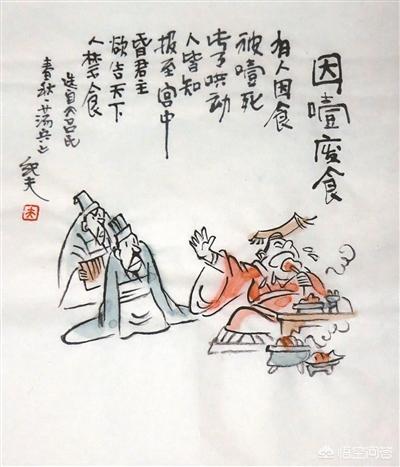 因噎废食
有人因食
被噎死
哄动
人皆知
报至宫中
昏君主
欲告天下
人禁食
选自《吕氏
春秋·荡兵》
纪夫
悟空问答